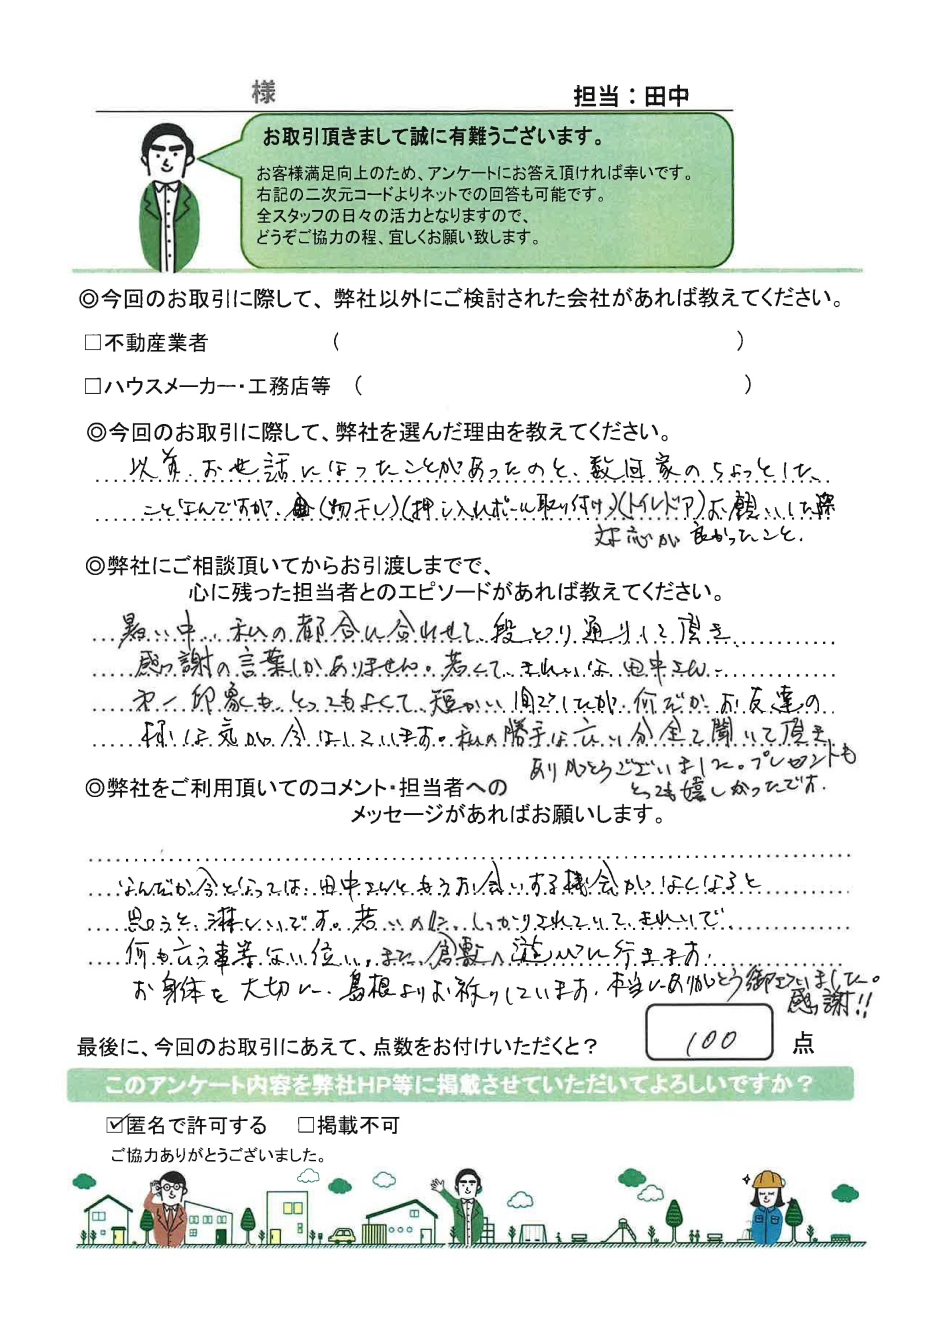 様
担当：田中
お取引頂きまして誠に有難うございます。
お客様満足向上のため、アンケートにお答え頂ければ幸いです。
右記の二次元コードよりネットでの回答も可能です。
全スタッフの日々の活力となりますので、
どうぞご協力の程、宜しくお願い致します。
◎今回のお取引に際して、弊社以外にご検討された会社があれば教えてください。
□不動産業者 （ ）
□ハウスメーカー・工務店等 （ ）
◎今回のお取引に際して、弊社を選んだ理由を教えてください。
以前、お世話になったことがあったのと、数回家のちょっとした
ことなんですが、(物干し)(押し入れポール取り付け)(トイレドア)お願いした際
対応が良かったこと。
◎弊社にご相談頂いてからお引渡しまでで、
心に残った担当者とのエピソードがあれば教えてください。
暑い中、私の都合に合わせて、段どり通りして頂き、
感謝の言葉しかありません。若くて、きれいな田中さん、
第一印象も、とってもよくて、短かい間でしたが、何だかお友達の
様な気が今はしています。私の勝手な言い分全て聞いて頂き
ありがとうございました。プレゼントも
とっても嬉しかったです。
◎弊社をご利用頂いてのコメント・担当者への
メッセージがあればお願いします。
なんだか今となっては、田中さんともうお会いする機会がなくなると
思うと、淋しいです。若いのに、しっかりされていて、きれいで、
何も言う事等ない位い。また、倉敷へ遊びに行きます。
お身体を大切に、島根よりお祈りしています。本当にありがとう御ざいました。
感謝!!
最後に、今回のお取引にあえて、点数をお付けいただくと？ 100 点
このアンケート内容を弊社HP等に掲載させていただいてよろしいですか？
☑匿名で許可する □掲載不可
ご協力ありがとうございました。